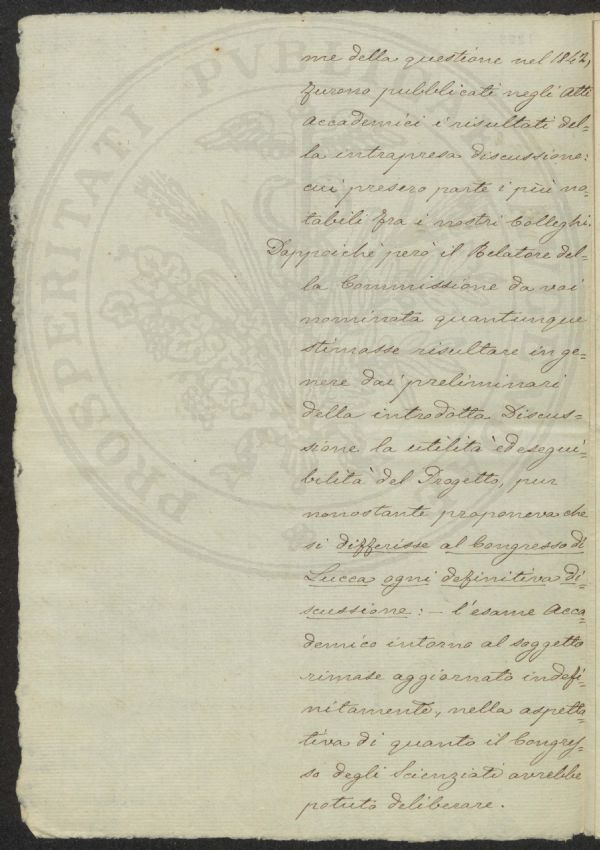 me della questione nel 1842,
furono pubblicati negli Atti
Accademici i risultati del-
la intrapresa discussione:
cui presero parte i più no-
tabili fra i nostri Colleghi.
Dappoichè però il Relatore del-
la Commissione da voi
nominata quantunque
stimasse risultare in ge-
nere dai preliminari
della introdotta Discus-
sione la utilità ed esegui-
bilità del Progetto, pur
nonostante proponeva che
si differisse al Congresso di
Lucca ogni definitiva di-
scussione: – l'esame Acca-
demico intorno al soggetto
rimase aggiornato indefi-
nitamente, nella aspetta-
tiva di quanto il Congres-
so degli Scienziati avrebbe
potuto deliberare.
PROSPERITATI PUBLIC